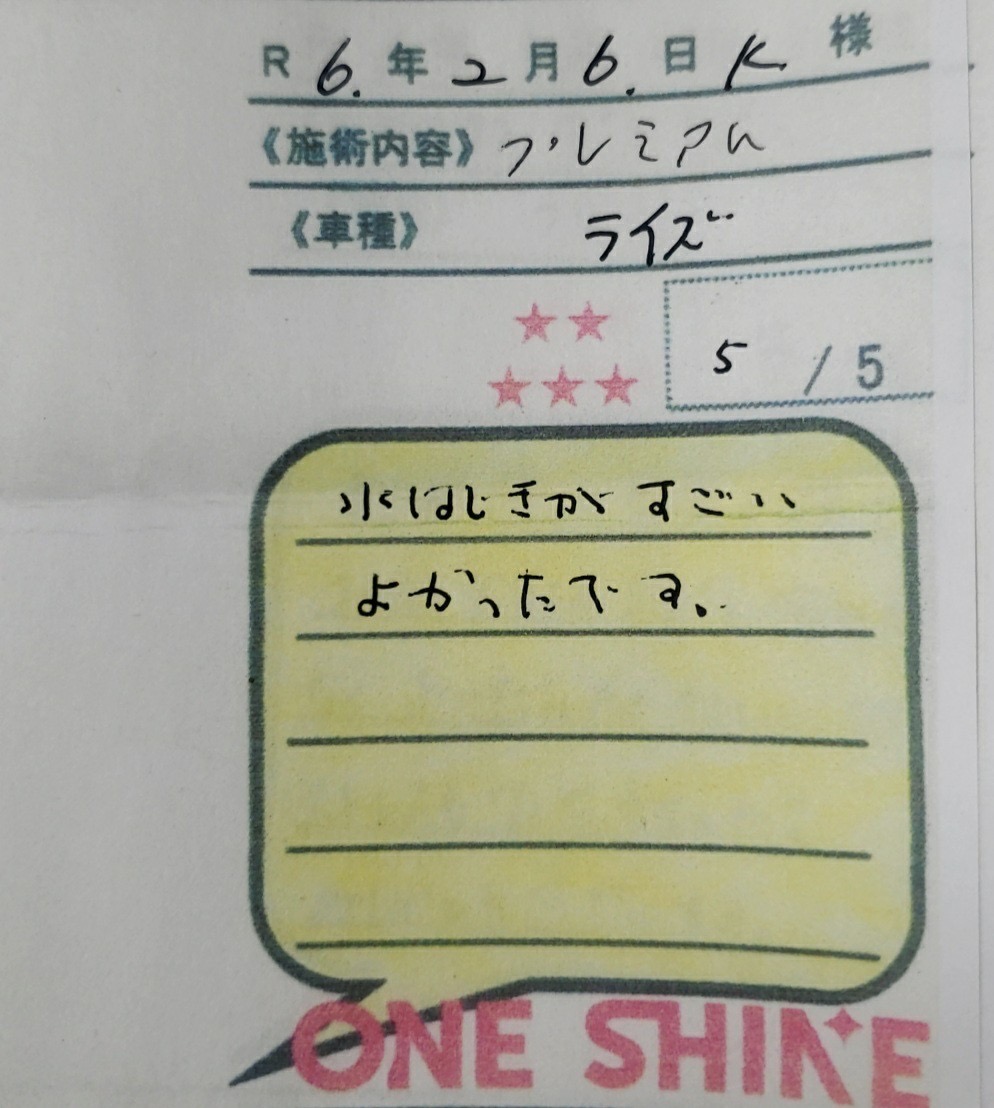 R 6. 年 2 月 6. 日 K. 様
《施術内容》 プレミアム
《車種》 ライズ
★★
★★★
5 / 5
水はじきがすごい
よかったです。
ONE SHINE